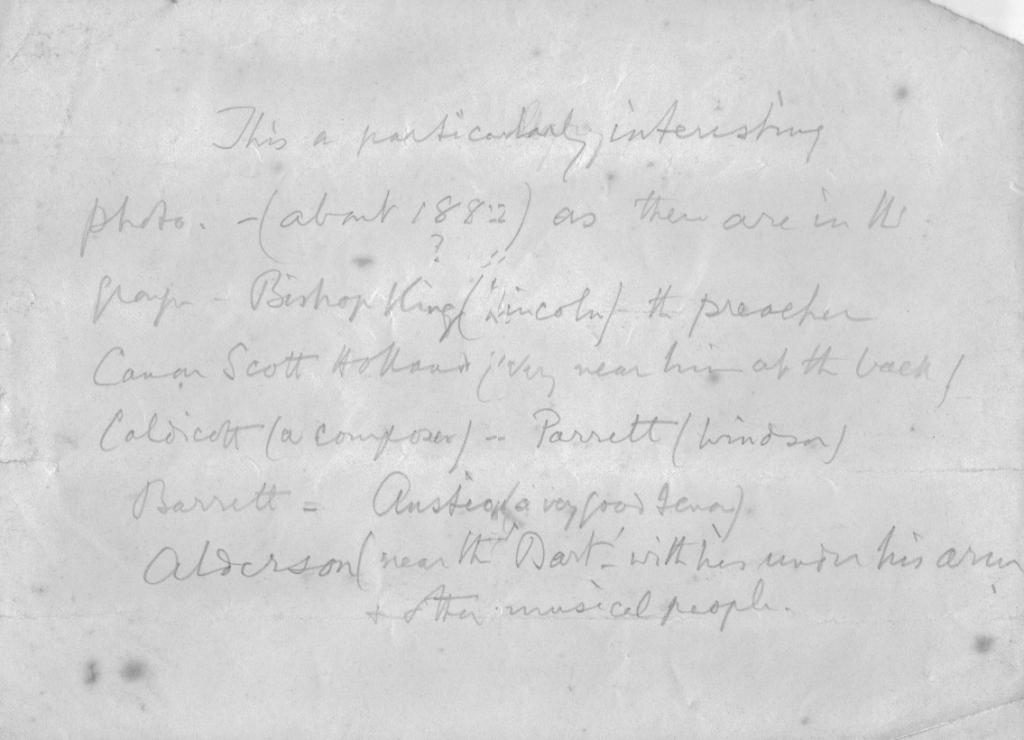 This a particularly interesting
photo. - (about 1882) as there are in the
?
group - Bishop King (Lincoln) - the preacher
Canon Scott Holland (very near him at the back)
Caldicott (a composer) - Parrett (Windsor)
Barrett = (a very good tenor).
Alderson (near the 'Dart' - with his under his arm
+ other musical people.